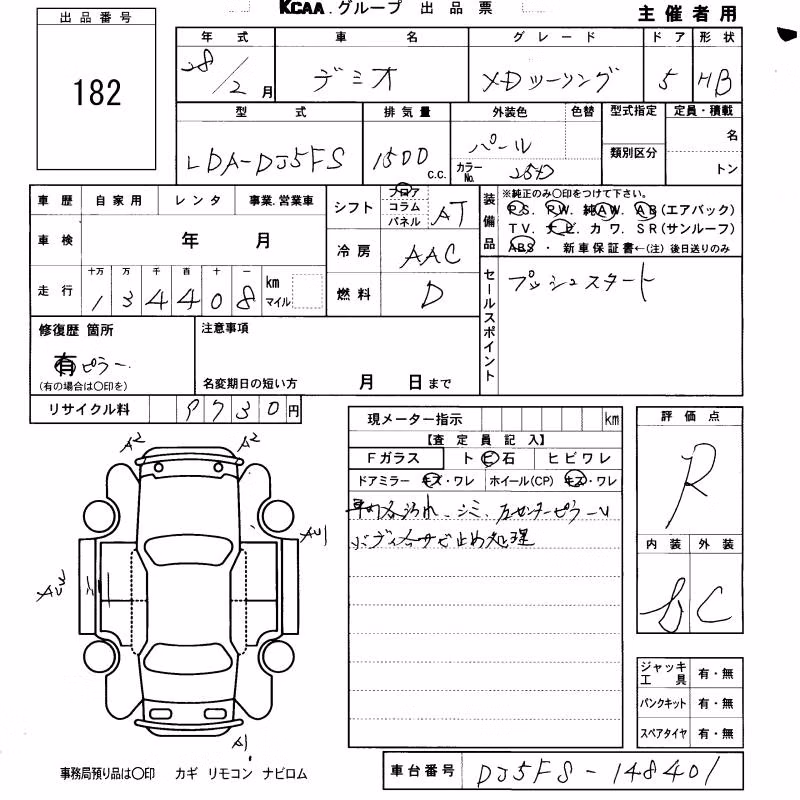 KCAA.グループ 出品票
主催者用
出品番号
182
年式 車名 グレード ドア 形状
28/2月 デミオ XDツーリング 5 HB
型式 排気量 外装色 色替 型式指定 定員・積載
LDA-DJ5FS 1500 c.c. パール 名
カラーNo. 25D 類別区分 トン
車歴 自家用 レンタ 事業.営業車
シフト フロア コラム パネル AT
装備品
※純正のみ○印をつけて下さい。
P.S. P.W. 純AW. AB(エアバック)
TV. ナビ カワ. SR(サンルーフ)
ABS ・ 新車保証書←(注) 後日送りのみ
車検 年 月
冷房 AAC
走行 十万 万 千 百 十 一
134408 km マイル
燃料 D
セールスポイント
プッシュスタート
修復歴 箇所
有 ピラー
(有の場合は○印を)
注意事項
名変期日の短い方 月 日まで
リサイクル料 9730円
現メーター指示 km
【査定員記入】
Fガラス トビ石 ヒビワレ
ドアミラー キズ・ワレ ホイール(CP) キズ・ワレ
車内各汚れ、シミ、左センターピラー
ボディ各サビ止め処理
評価点
R
内装 外装
C
A2 A2
AU1
A1
ジャッキ工具 有・無
パンクキット 有・無
スペアタイヤ 有・無
事務局預り品は○印 カギ リモコン ナビロム
車台番号 DJ5FS-148401